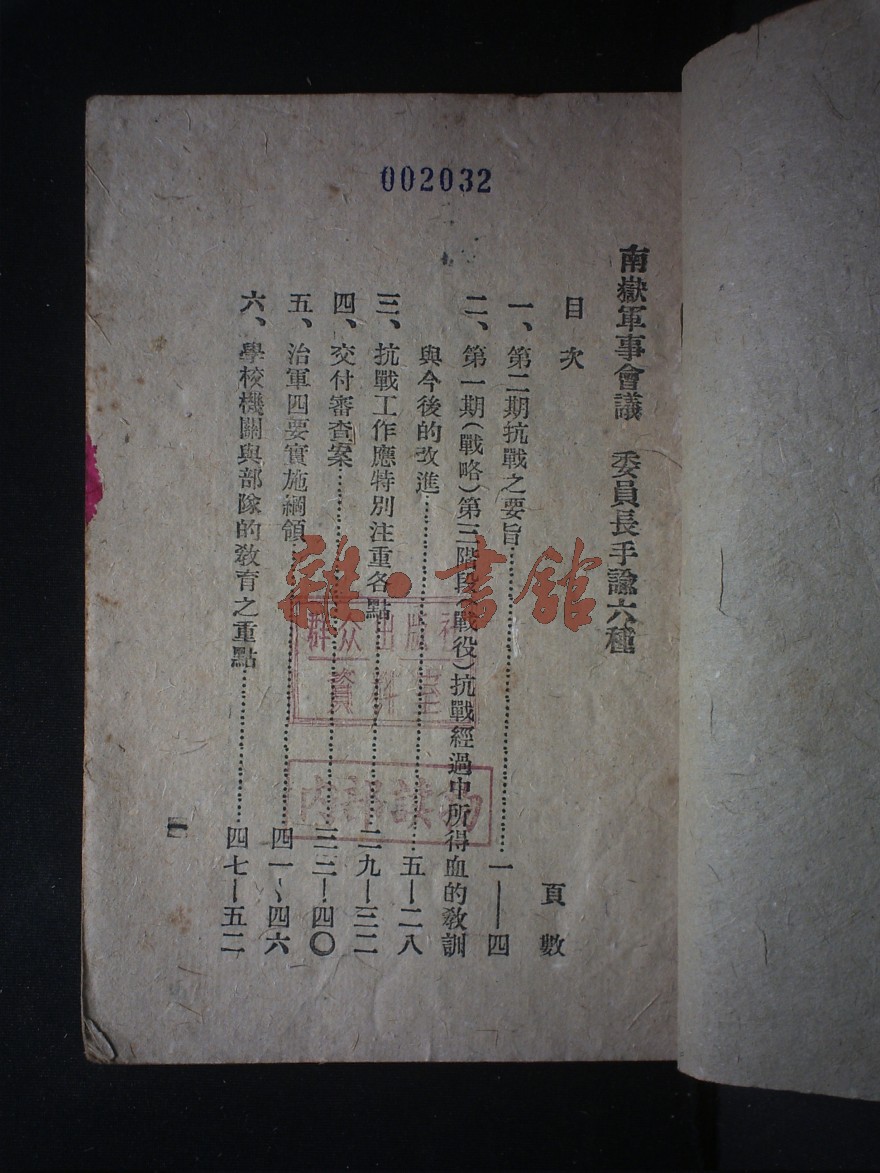 002032
南嶽軍事會議　委員長手諭六種
目次　頁數
一、第二期抗戰之要旨………一——四
二、第一期(戰略)第三階段(戰役)抗戰經過中所得血的敎訓
與今後的改進………五—二八
三、抗戰工作應特別注重各點………二九—三二
四、交付審查案………三三—四〇
五、治軍四要實施綱領………四一～四六
六、學校機關與部隊的敎育之重點………四七—五二
一
群众出版社
資料室
内部读物
雜·書館